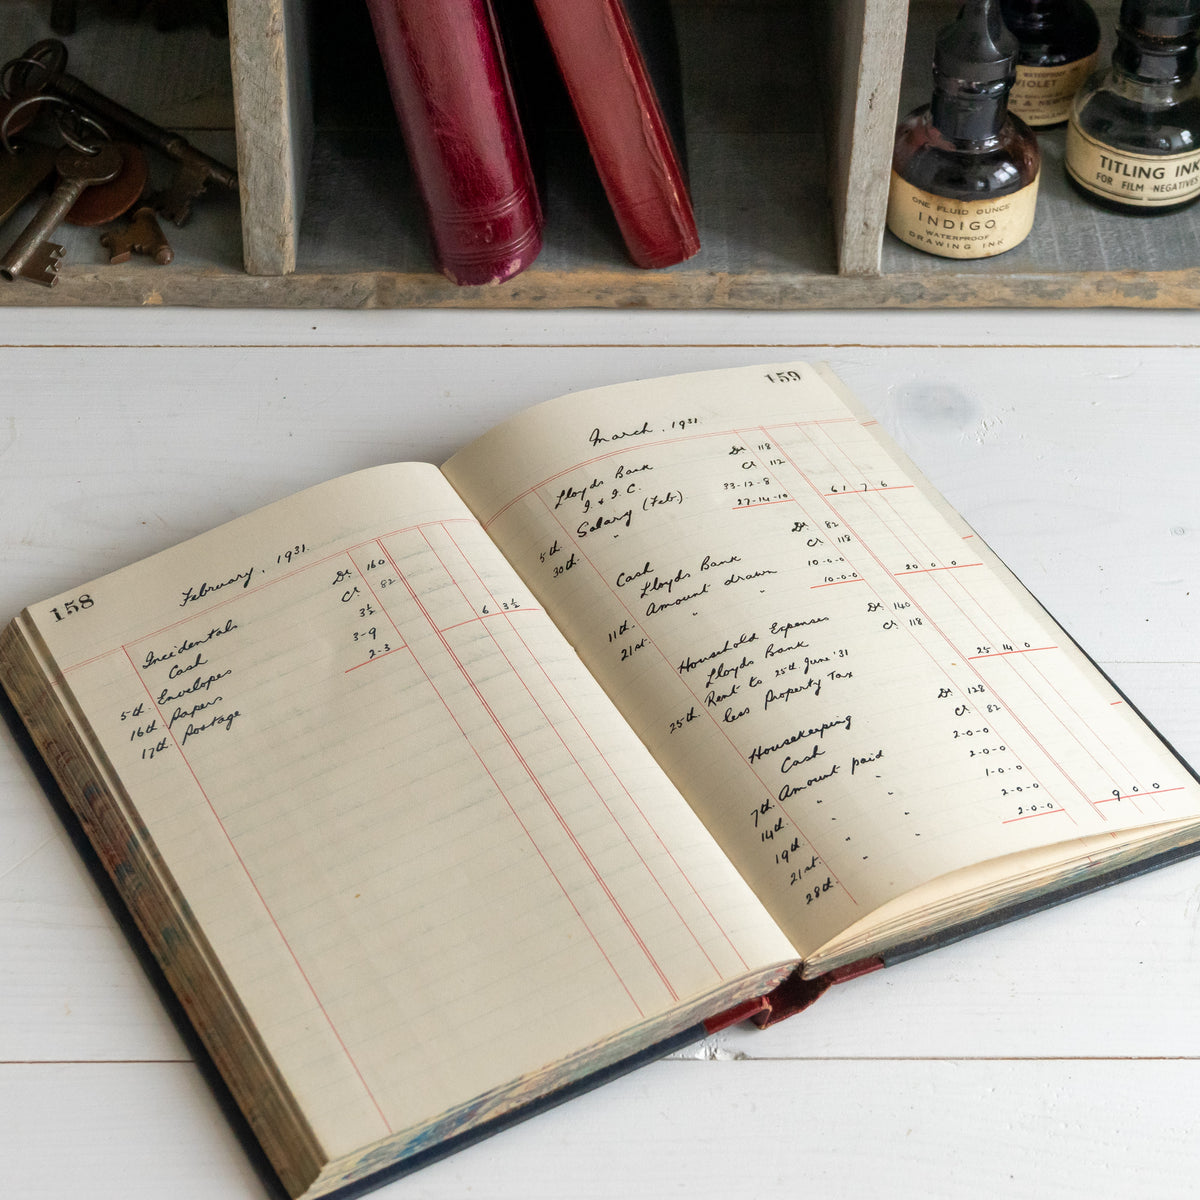 WATERPROOF
VIOLET
ENGLAND
TITLING INK
FOR FILM NEGATIVES
ONE FLUID OUNCE
INDIGO
WATERPROOF
DRAWING INK
158
February, 1931.
Incidentals Dr. 160
Cash Cr 82
5th. Envelopes 3½
16th Papers 3-9
17th Postage 2-3 6 3½
159
March, 1931.
Lloyds Bank Dr 118
I. & I. C. Cr 112
5th. Salary (Feb.) 33-12-8
30th. " 27-14-10 61 7 6
Cash Dr. 82
Lloyds Bank Cr 118
11th. Amount drawn 10-0-0
21st. " " 10-0-0 20 0 0
Household Expenses Dr. 140
Lloyds Bank Cr 118
25th. Rent to 25th June '31
less Property Tax 25 14 0
Housekeeping Dr 128
Cash Cr. 82
7th. Amount paid 2-0-0
14th. " " 2-0-0
19th. " " 1-0-0
21st. " " 2-0-0
28th. " " 2-0-0 9 0 0